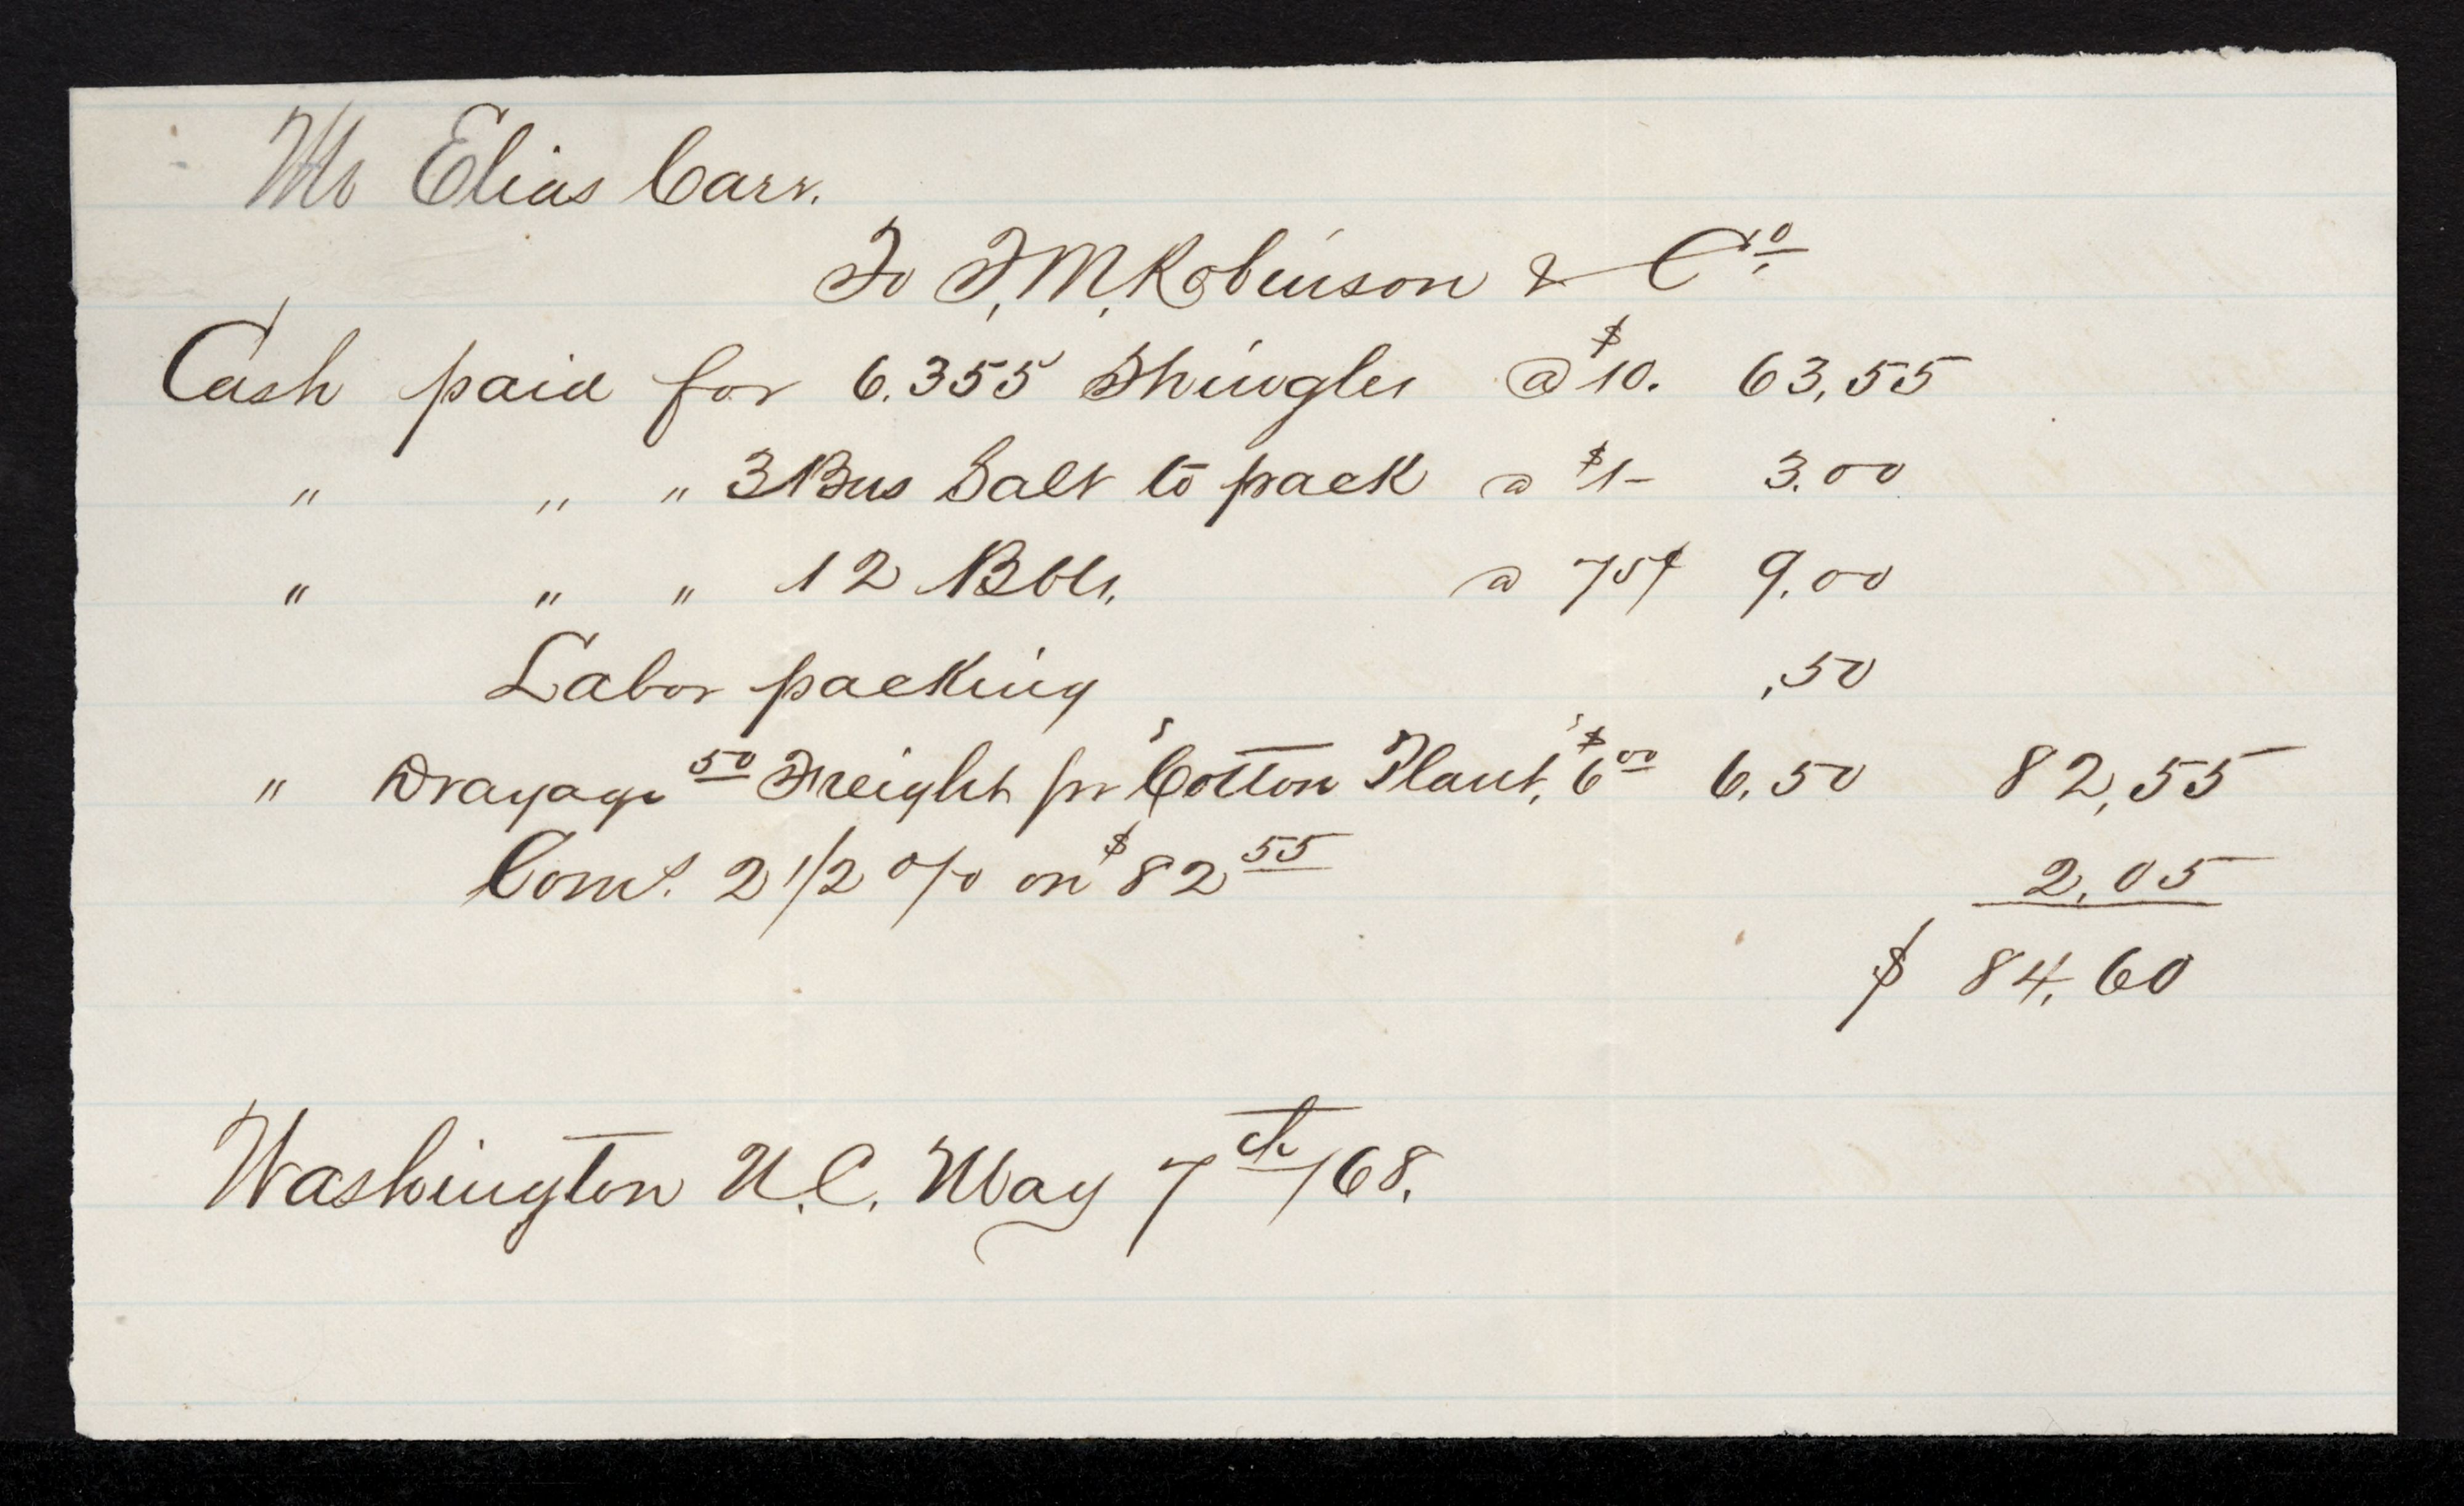 Mr Elias Carr.
To T, M, Robinson & Co.
Cash paid for 6.355 Shingles @ $10. 63,55
" " " 3 Bus Salt to pack @ $1- 3.00
" " " 12 Bbls. @ 75¢ 9,00
Labor packing ,50
" Drayage 50 Freight pr "Cotton Plant," $6 00 6,50 82,55
Coms. 2 1/2 % on $82 55 2,05
$ 84,60
Washington N.C. May 7th /68.